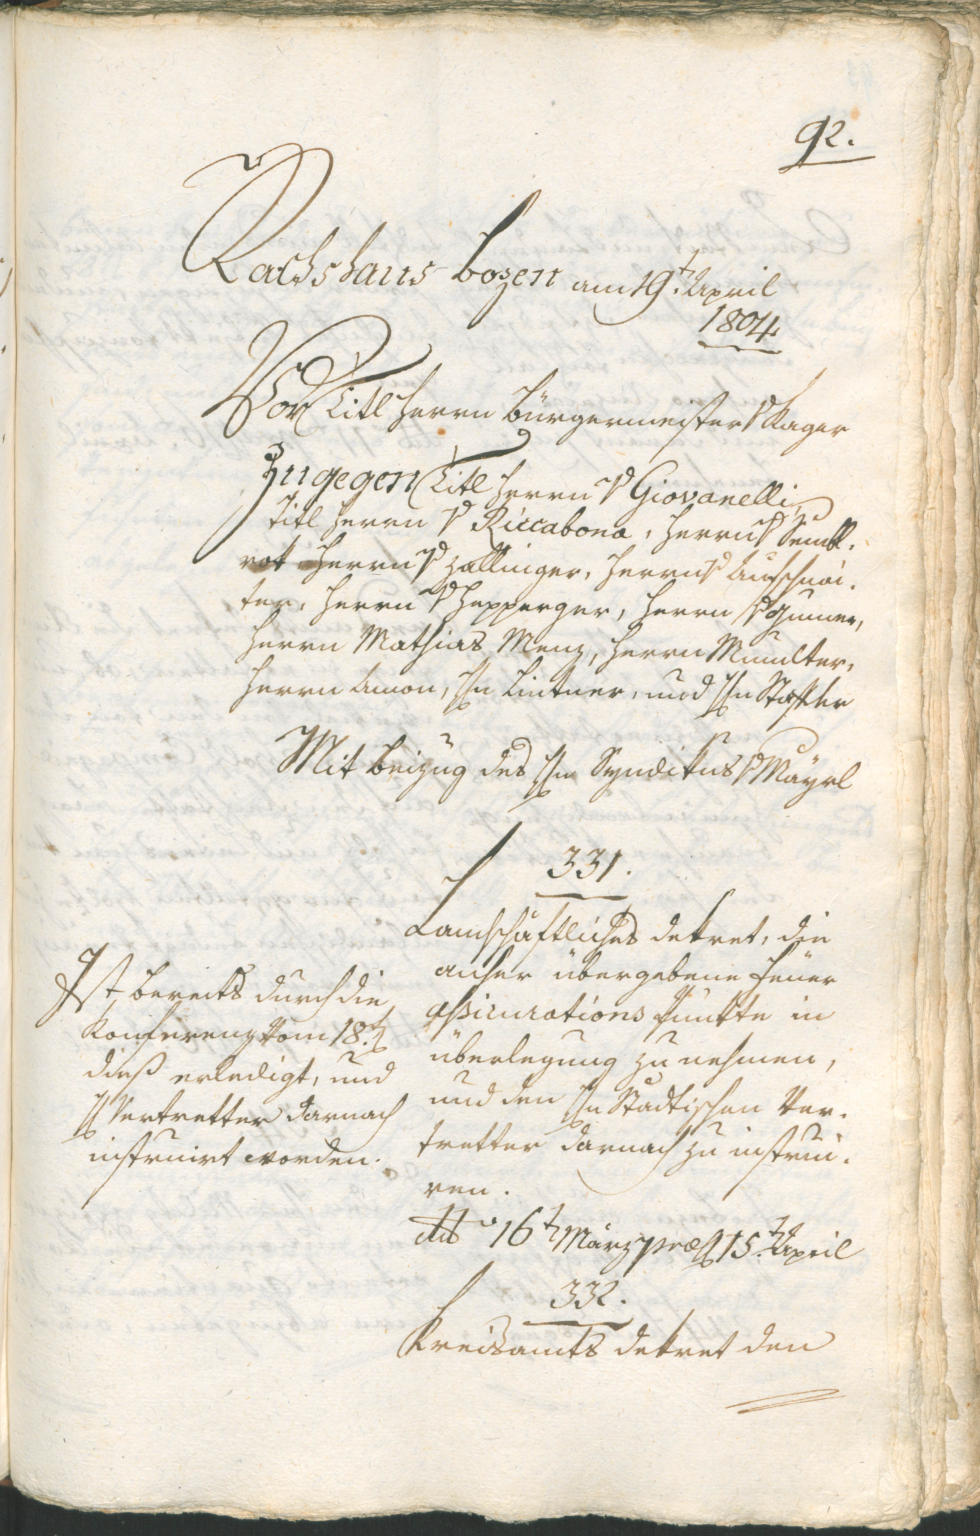 92.
Rathshaus Bozen am 19t. April
1804
Vor Titl Herrn Bürgermeister v Kager
Zugegen Titl Herrn v Giovanelli,
Titl Herrn v Riccabona, Herrn v Seml.
rot Herrn v Zallinger, Herrn v Aufschnai-
ter, Herrn v Hepperger, Herrn v Gumer,
Herrn Mathias Menz, Herrn Mumelter,
Herrn Amon, Hn Lintner, und Hn Stapler
Mit Beizug des Hn Syndikus v Mayrl
331.
Landschäftliches Dekret, die
anher übergebene Feuer
assicurations Punkte in
überlegung zu nehmen,
und den Hn Stadtischen Ver-
tretter darnach zu instrui-
ren.
dto 16t März præs 15t. April
Ist bereits durch die
Konferenz vom 18.t
dieß erledigt, und
H Vertretter darnach
instruirt worden.
332.
Kreisamts Dekret den